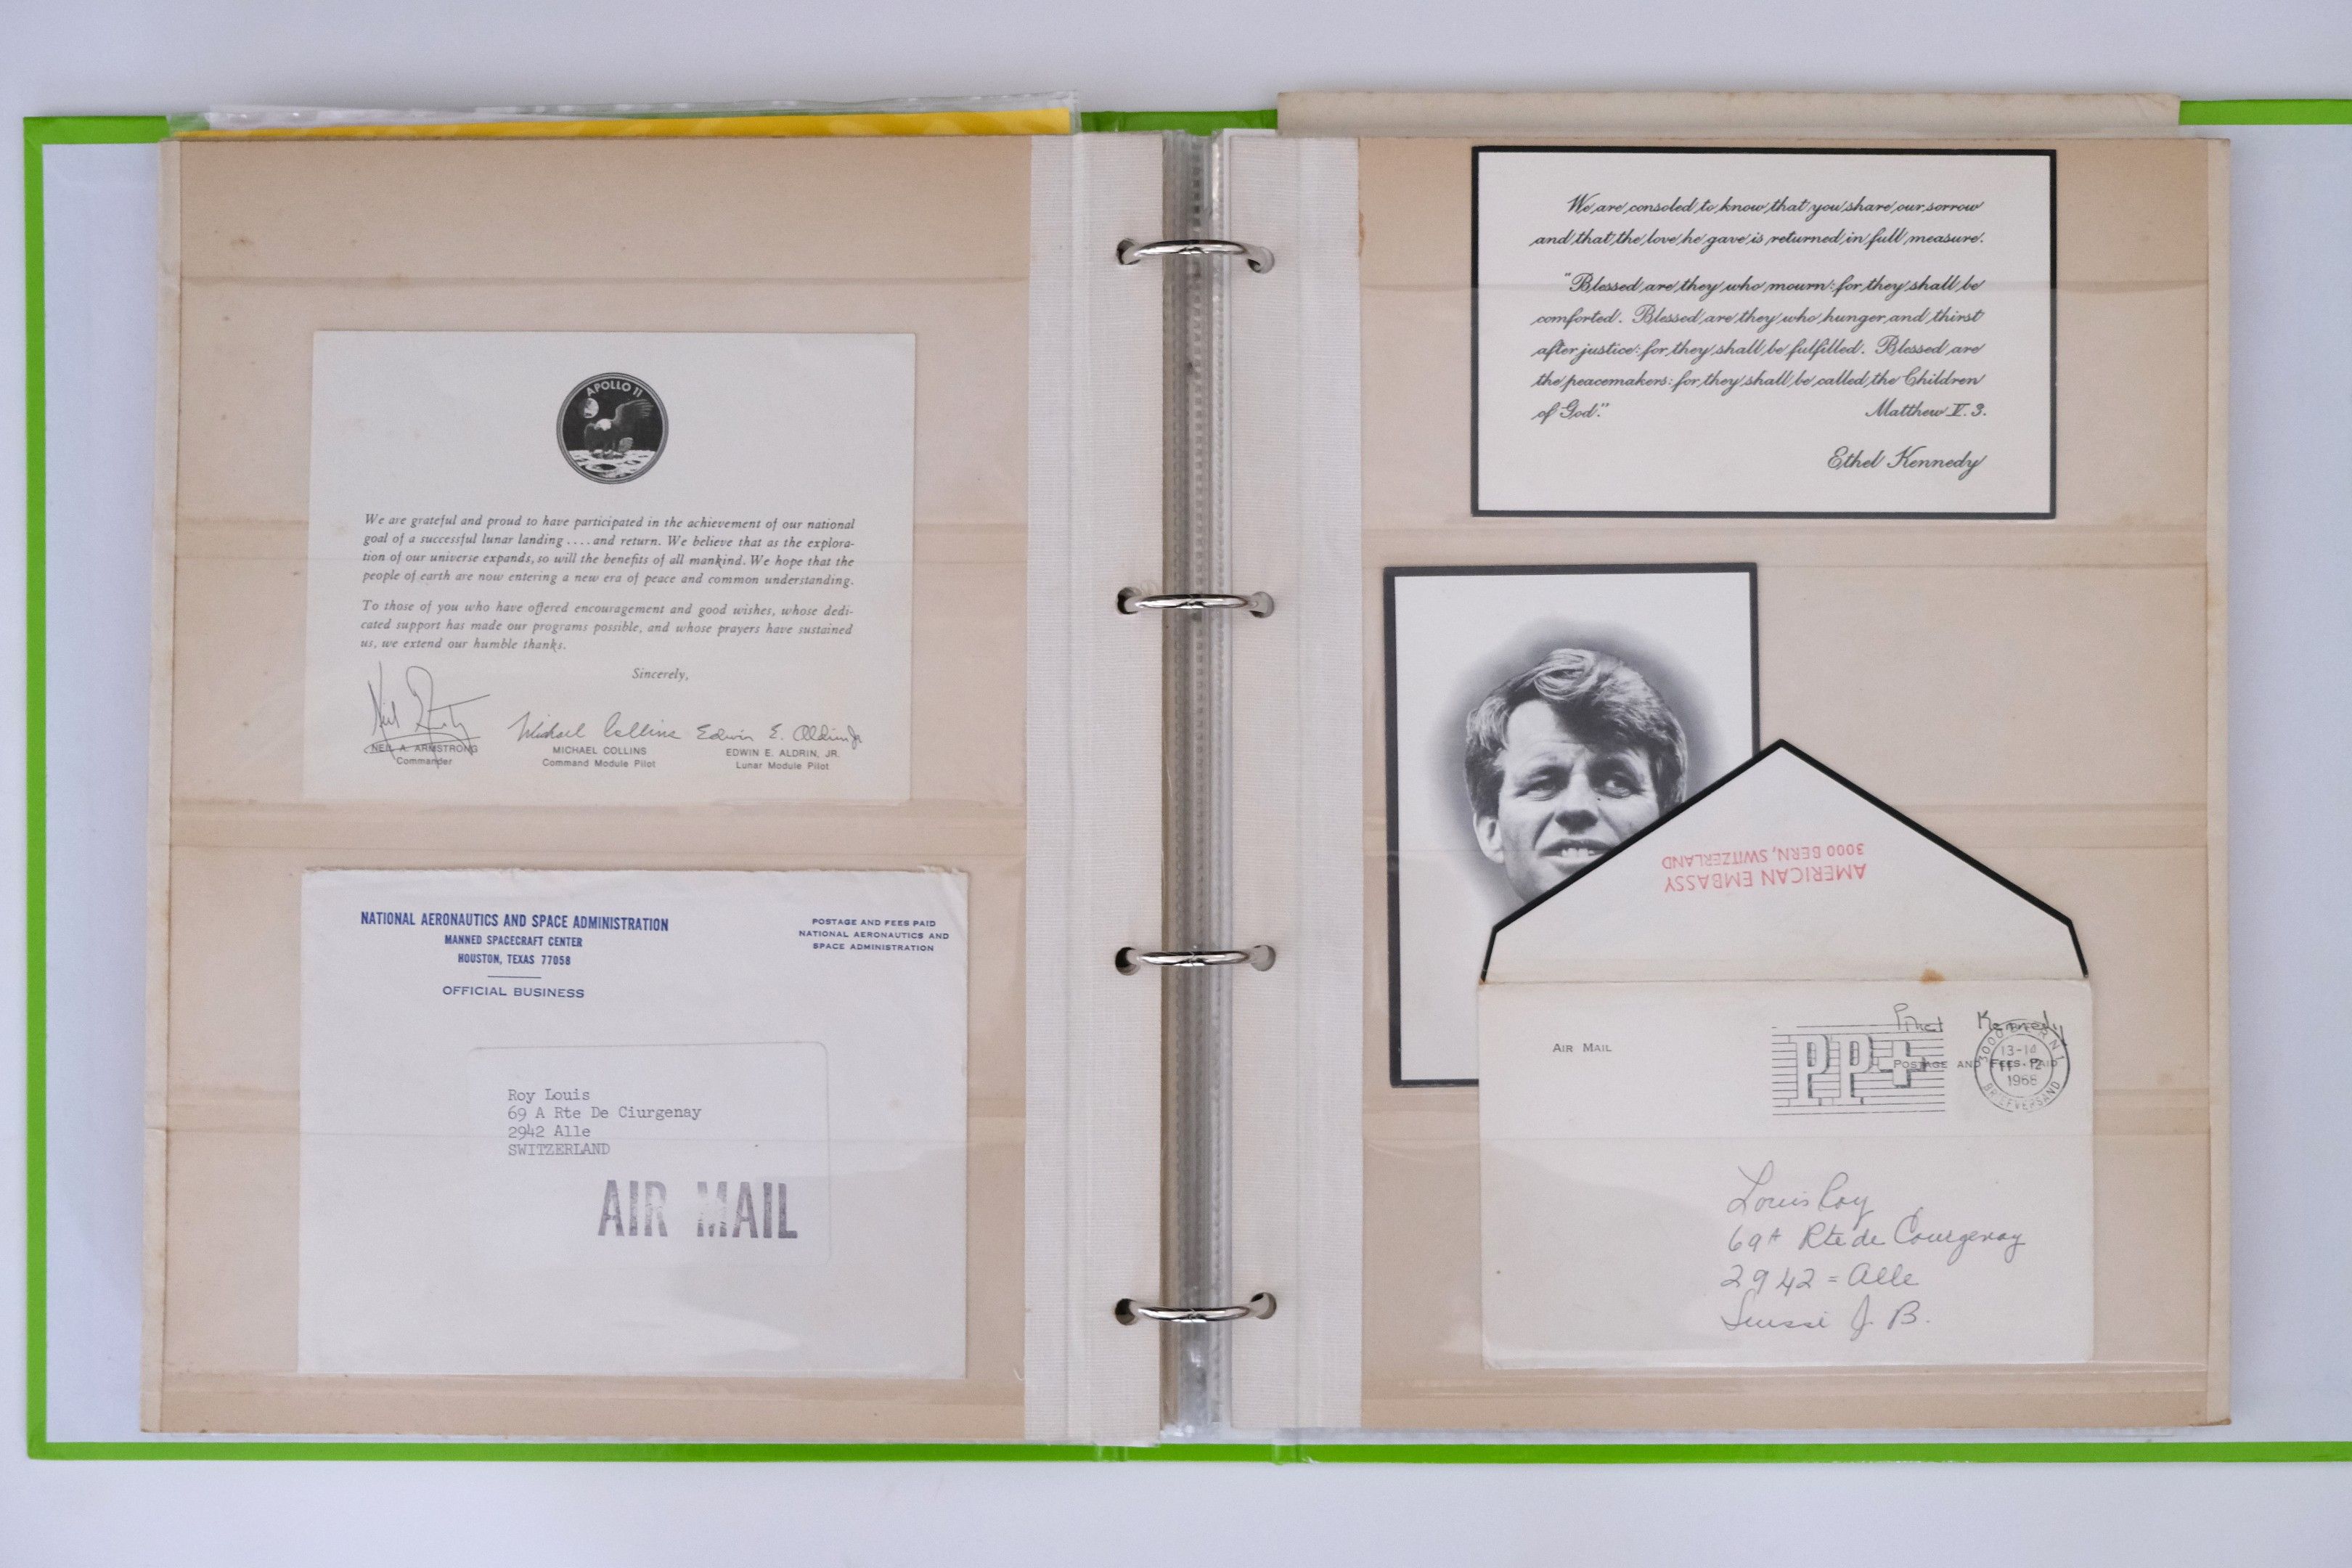 APOLLO 11
We are grateful and proud to have participated in the achievement of our national
goal of a successful lunar landing .... and return. We believe that as the explora-
tion of our universe expands, so will the benefits of all mankind. We hope that the
people of earth are now entering a new era of peace and common understanding.
To those of you who have offered encouragement and good wishes, whose dedi-
cated support has made our programs possible, and whose prayers have sustained
us, we extend our humble thanks.
Sincerely,
Michael Collins Edwin E. Aldrin Jr
NEIL A. ARMSTRONG MICHAEL COLLINS EDWIN E. ALDRIN, JR.
Commander Command Module Pilot Lunar Module Pilot
NATIONAL AERONAUTICS AND SPACE ADMINISTRATION
MANNED SPACECRAFT CENTER
HOUSTON, TEXAS 77058
OFFICIAL BUSINESS
POSTAGE AND FEES PAID
NATIONAL AERONAUTICS AND
SPACE ADMINISTRATION
Roy Louis
69 A Rte De Ciurgenay
2942 Alle
SWITZERLAND
AIR MAIL
We are consoled to know that you share our sorrow
and that the love he gave is returned in full measure.
"Blessed are they who mourn: for they shall be
comforted. Blessed are they who hunger and thirst
after justice: for they shall be fulfilled. Blessed are
the peacemakers: for they shall be called the Children
of God." Matthew V. 3.
Ethel Kennedy
AMERICAN EMBASSY
3000 BERN, SWITZERLAND
Kennedy
AIR MAIL
PP+
POSTAGE AND FEES PAID
3000 BERN 1
13-14
1968
BRIEFVERSAND
Louis Roy
69A Rte de Courgenay
2942 = Alle
Suisse J. B.